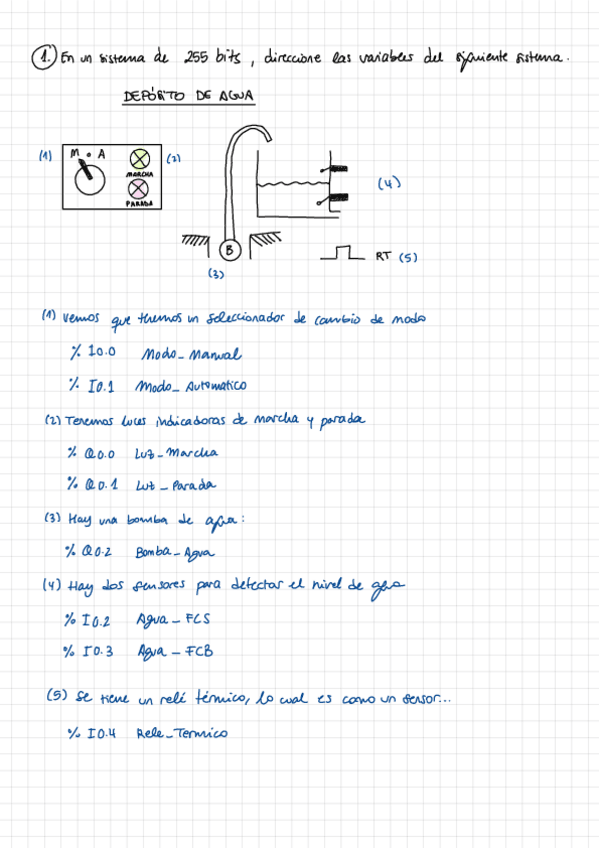 1. En un sistema de 255 bits, direccione las variables del siguiente sistema.
DEPÓSITO DE AGUA
(1) M A (2)
MARCHA
PARADA
(4)
B
RT (5)
(3)
(1) Vemos que tenemos un seleccionador de cambio de modo
% I0.0 Modo_Manual
% I0.1 Modo_Automatico
(2) Tenemos luces indicadoras de marcha y parada
% Q0.0 Luz_Marcha
% Q0.1 Luz_Parada
(3) Hay una bomba de agua:
% Q0.2 Bomba_Agua
(4) Hay dos sensores para detectar el nivel de agua
% I0.2 Agua_FCS
% I0.3 Agua_FCB
(5) Se tiene un relé térmico, lo cual es como un sensor...
% I0.4 Rele_Termico